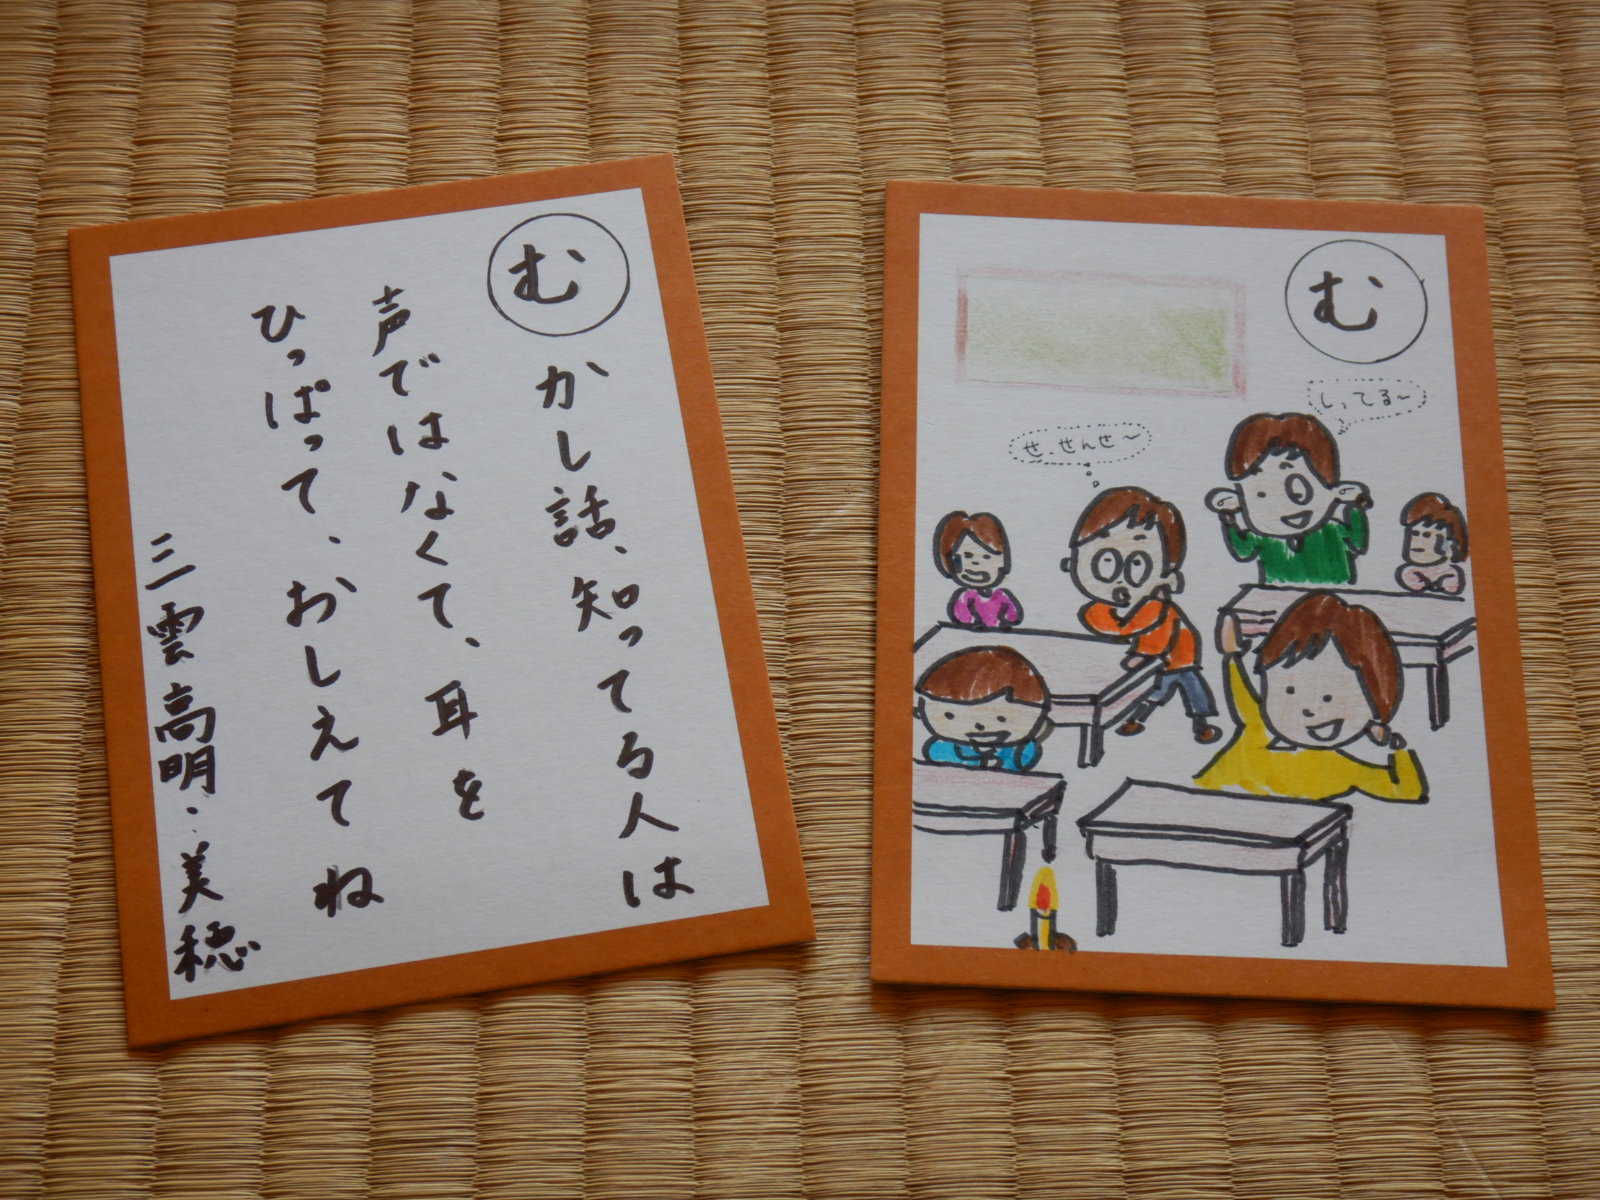 む
かし話、知ってる人は
声ではなくて、耳を
ひっぱって、おしえてね
三雲高明・美穂
む
しってる～
せ、せんせ～